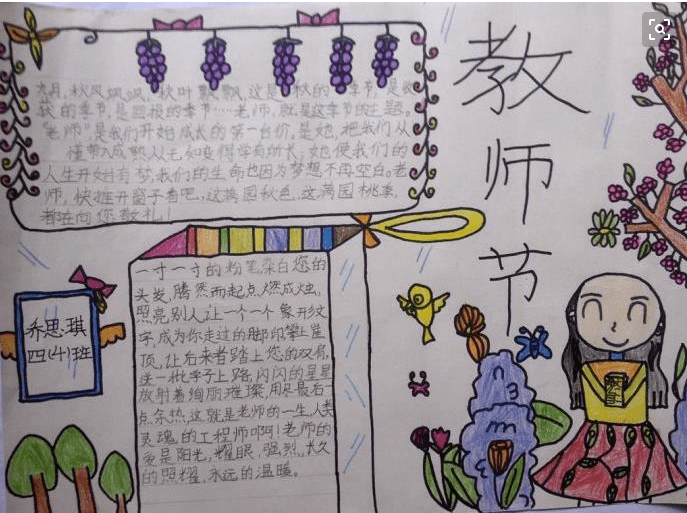 教师节
九月,秋风飒飒,秋叶飘飘,这是秋的季节,是收
获的季节,是回报的季节……老师,就是这季节的主题。
"老师"是我们开始成长的第一台价,是她,把我们从
懂带入成熟从无知变得学有所长;她使我们的
人生开始有梦,我们的生命也因为梦想不再空白。老
师,快推开窗子看吧,这满园秋色,这满园桃李,
都在向您敬礼!
乔思琪
四(4)班
一寸一寸的粉笔,染白您的
头发,腾然而起点燃成烛,
照亮别人让一个一个象形文
字,成为你走过的脚印攀上崖
顶,让后来者踏上您的双肩,
送一批学子上路,闪闪的星星
放射着绚丽璀璨,用尽最后一
点余热,这就是老师的一生,人类
灵魂,的工程师啊!老师的
爱是阳光,耀眼,强烈,长久
的照耀,永远的温暖。